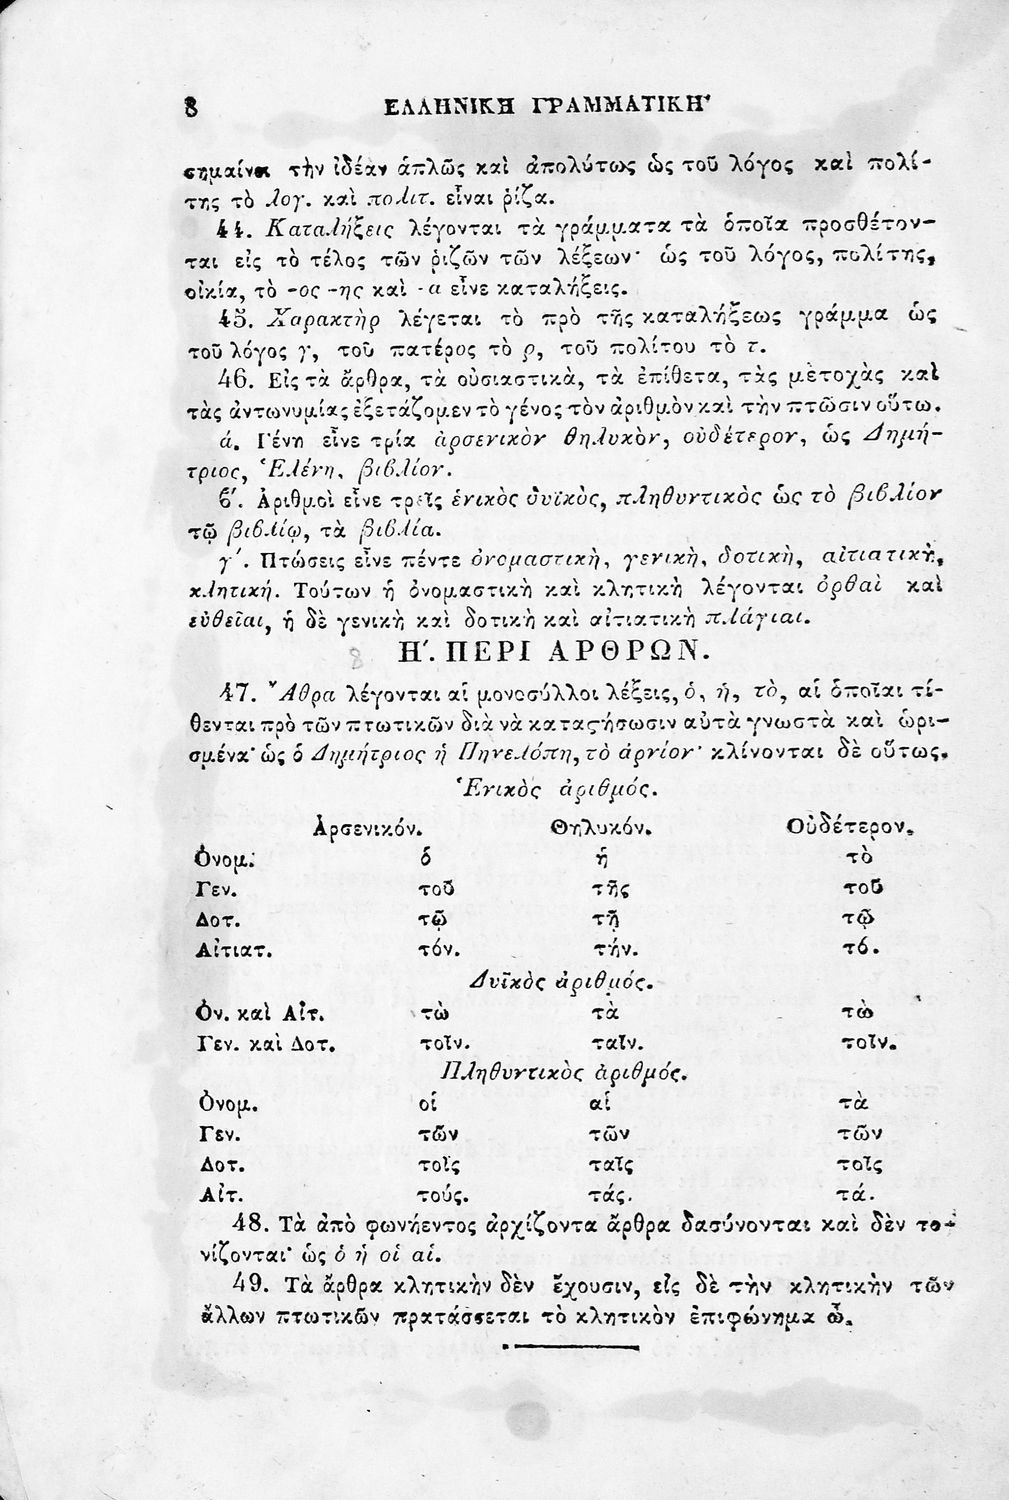 8 ΕΛΛΗΝΙΚΗ ΓΡΑΜΜΑΤΙΚΗ'
σημαίνει τὴν ἰδέαν ἁπλῶς καὶ ἀπολύτως ὡς τοῦ λόγος καὶ πολί-
της τὸ λογ. καὶ πολιτ. εἶναι ῥίζα.
44. Καταλήξεις λέγονται τὰ γράμματα τὰ ὁποῖα προσθέτον-
ται εἰς τὸ τέλος τῶν ῥιζῶν τῶν λέξεων· ὡς τοῦ λόγος, πολίτης,
οἰκία, τὸ -ος -ης καὶ -α εἶνε καταλήξεις.
45. Χαρακτὴρ λέγεται τὸ πρὸ τῆς καταλήξεως γράμμα ὡς
τοῦ λόγος γ, τοῦ πατέρος τὸ ρ, τοῦ πολίτου τὸ τ.
46. Εἰς τὰ ἄρθρα, τὰ οὐσιαστικὰ, τὰ ἐπίθετα, τὰς μετοχὰς καὶ
τὰς ἀντωνυμίας ἐξετάζομεν τὸ γένος τὸν ἀριθμὸν καὶ τὴν πτῶσιν οὕτω.
ά. Γένη εἶνε τρία ἀρσενικὸν θηλυκὸν, οὐδέτερον, ὡς Δημή-
τριος, Ἑλένη, βιβλίον.
ϐ'. Ἀριθμοὶ εἶνε τρεῖς ἑνικὸς δυϊκὸς, πληθυντικὸς ὡς τὸ βιβλίον
τῷ βιβλίῳ, τὰ βιβλία.
γ'. Πτώσεις εἶνε πέντε ὀνομαστικὴ, γενικὴ, δοτικὴ, αἰτιατικὴ,
κλητική. Τούτων ἡ ὀνομαστικὴ καὶ κλητικὴ λέγονται ὀρθαὶ καὶ
εὐθεῖαι, ἡ δὲ γενικὴ καὶ δοτικὴ καὶ αἰτιατικὴ πλάγιαι.
8 Η'. ΠΕΡΙ ΑΡΘΡΩΝ.
47. Ἄθρα λέγονται αἱ μονοσύλλοι λέξεις, ὁ, ἡ, τὸ, αἱ ὁποῖαι τί-
θενται πρὸ τῶν πτωτικῶν διὰ νὰ καταϛήσωσιν αὐτὰ γνωστὰ καὶ ὡρι-
σμένα· ὡς ὁ Δημήτριος ἡ Πηνελόπη, τὸ ἀρνίον· κλίνονται δὲ οὕτως.
Ἑνικὸς ἀριθμός.
Ἀρσενικόν. Θηλυκόν. Οὐδέτερον.
Ὀνομ. ὁ ἡ τὸ
Γεν. τοῦ τῆς τοῦ
Δοτ. τῷ τῇ τῷ
Αἰτιατ. τόν. τήν. τό.
Δυϊκὸς ἀριθμός.
Ὀν. καὶ Αἰτ. τὼ τὰ τὼ
Γεν. καὶ Δοτ. τοῖν. ταῖν. τοῖν.
Πληθυντικὸς ἀριθμός.
Ὀνομ. οἱ αἱ τὰ
Γεν. τῶν τῶν τῶν
Δοτ. τοῖς ταῖς τοῖς
Αἰτ. τούς. τάς. τά.
48. Τὰ ἀπὸ φωνήεντος ἀρχίζοντα ἄρθρα δασύνονται καὶ δὲν το-
νίζονται· ὡς ὁ ἡ οἱ αἱ.
49. Τὰ ἄρθρα κλητικὴν δὲν ἔχουσιν, εἰς δὲ τὴν κλητικὴν τῶν
ἄλλων πτωτικῶν πρατάσσεται τὸ κλητικὸν ἐπιφώνημα ὦ.